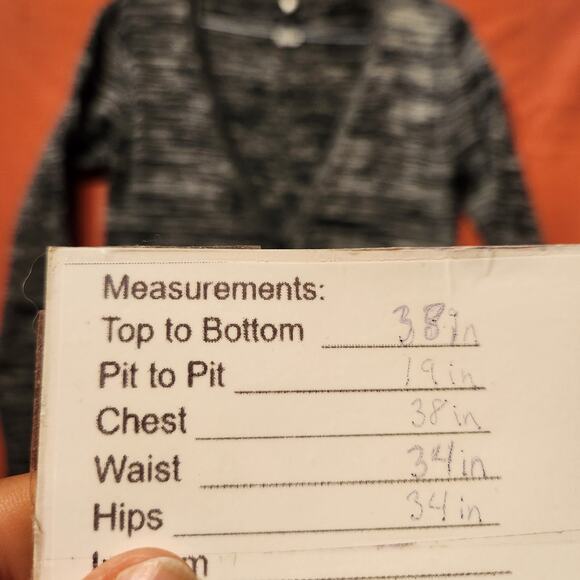 Measurements:
Top to Bottom 38in
Pit to Pit 19in
Chest 38in
Waist 34in
Hips 34in